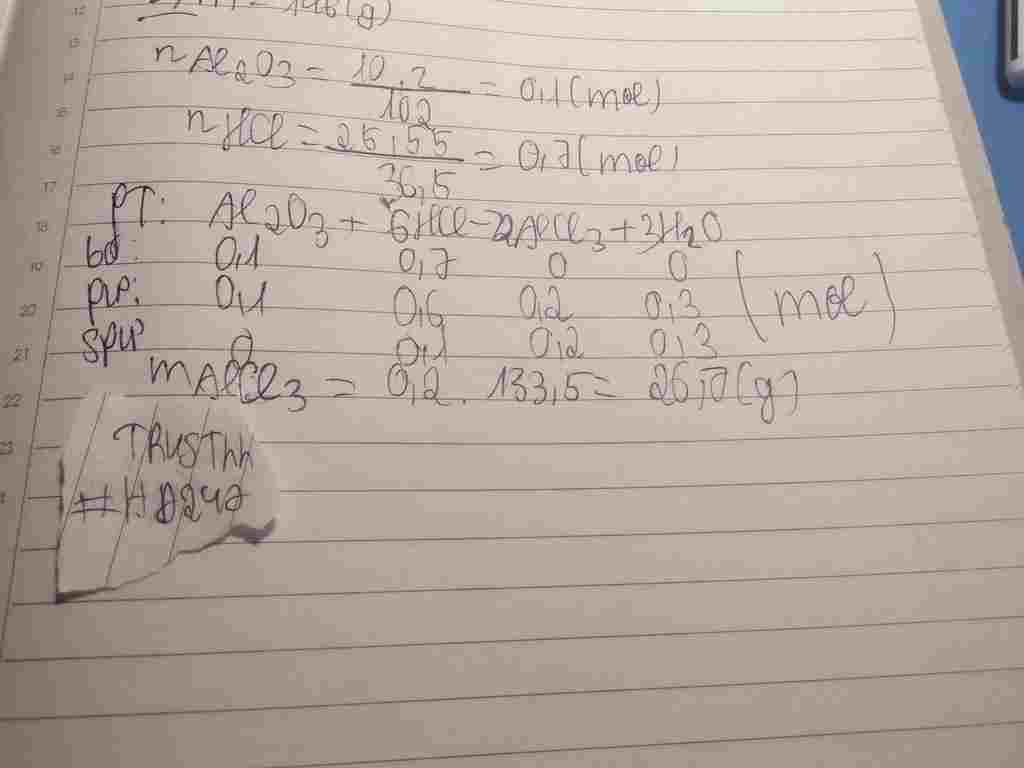 = 146(g)
nAl2O3 = 10,2 / 102 = 0,1(mol)
nHCl = 25,55 / 36,5 = 0,7(mol)
PT: Al2O3 + 6HCl → 2AlCl3 + 3H2O
bđ: 0,1 0,7 0 0 (mol)
pư: 0,1 0,6 0,2 0,3
spư 0 0,1 0,2 0,3
mAlCl3 = 0,2 . 133,5 = 26,7(g)
TRUSThh
#HD247
12
13
14
15
16
17
18
19
20
21
22
23